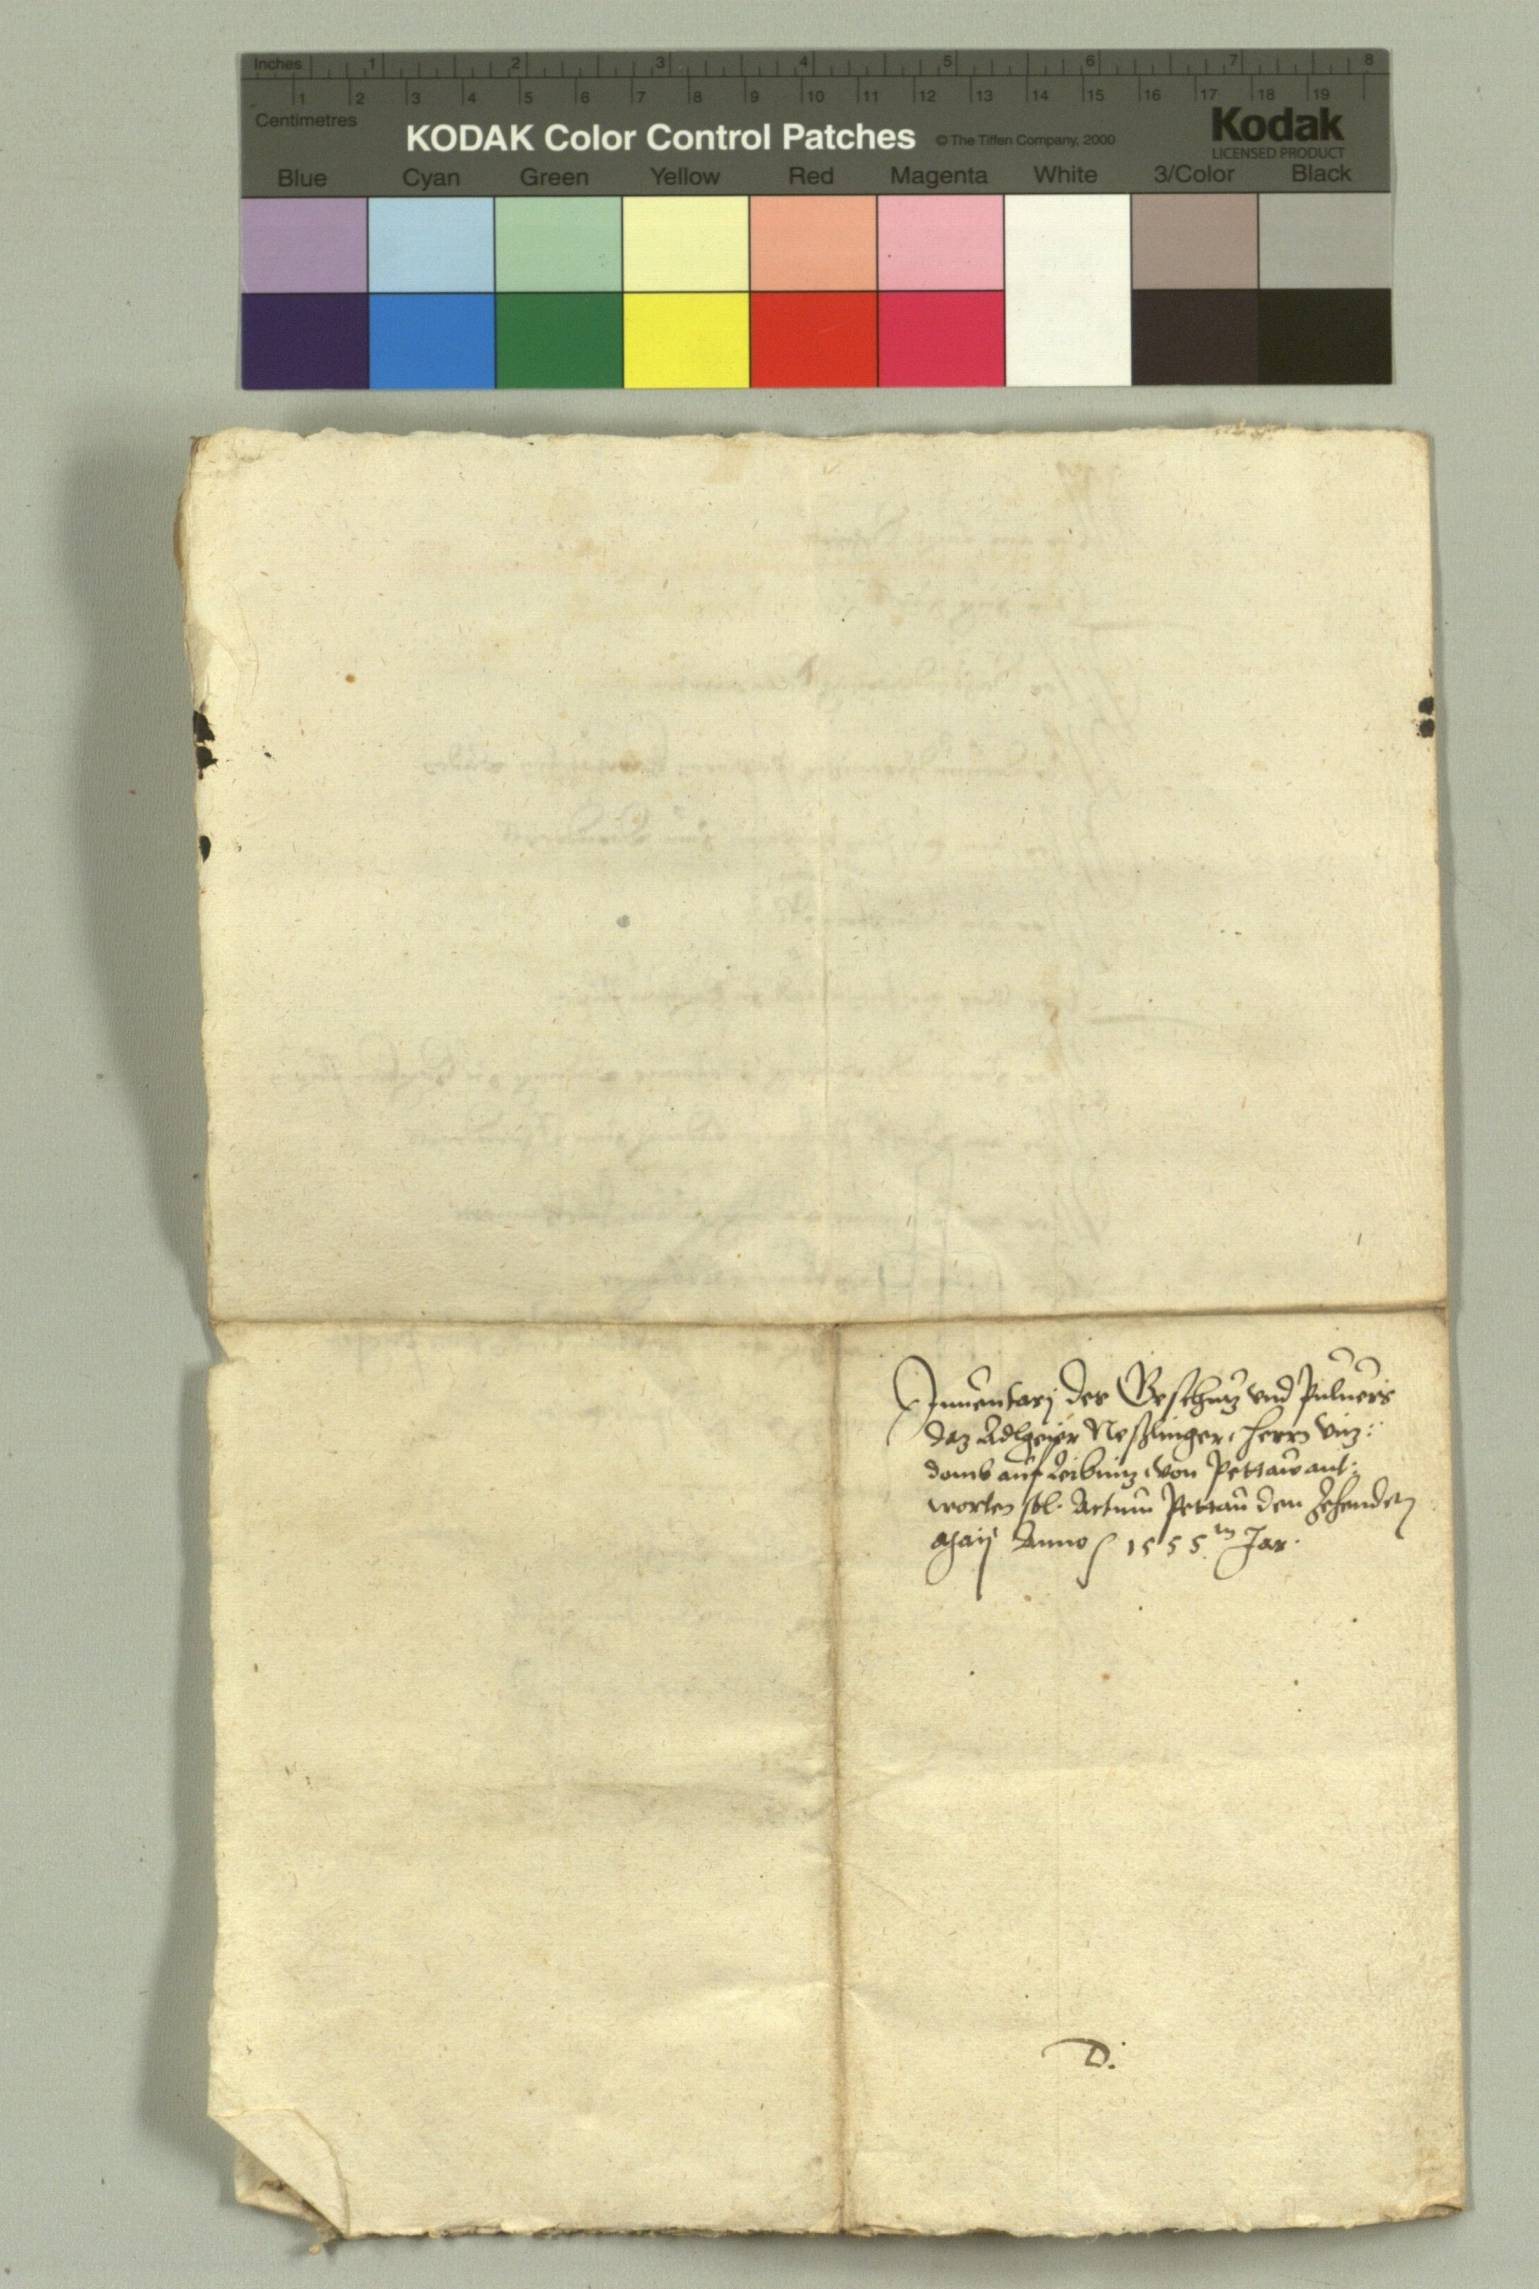 Inches 1 2 3 4 5 6 7 8
1 2 3 4 5 6 7 8 9 10 11 12 13 14 15 16 17 18 19
Centimetres
KODAK Color Control Patches © The Tiffen Company, 2000 Kodak
LICENSED PRODUCT
Blue Cyan Green Yellow Red Magenta White 3/Color Black
Inuentarj des Geschutz vnd Puluers
daz Neßlinger, herrn viz:
domb auf Leibnitz, von Pettaw ant:
worten sol. Actum Pettau den zehenden
Maij Anno 1555 ten Jar.
D.